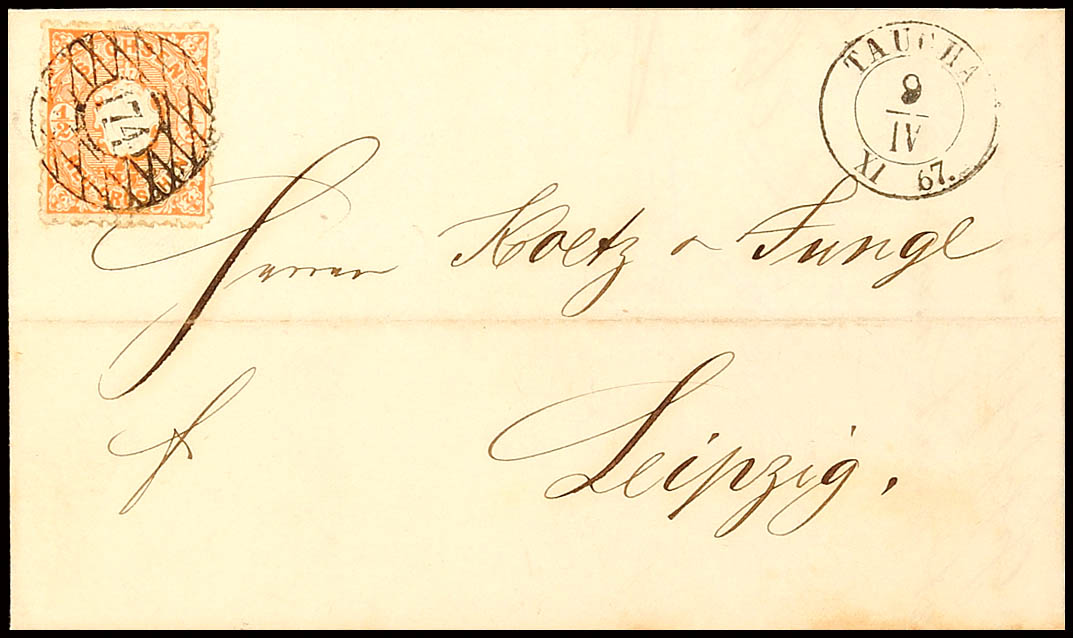 SACHSEN
1/2
174
TAUCHA
9
IV
IX 67.
Herren Koetz & Jungl
fr
Leipzig.